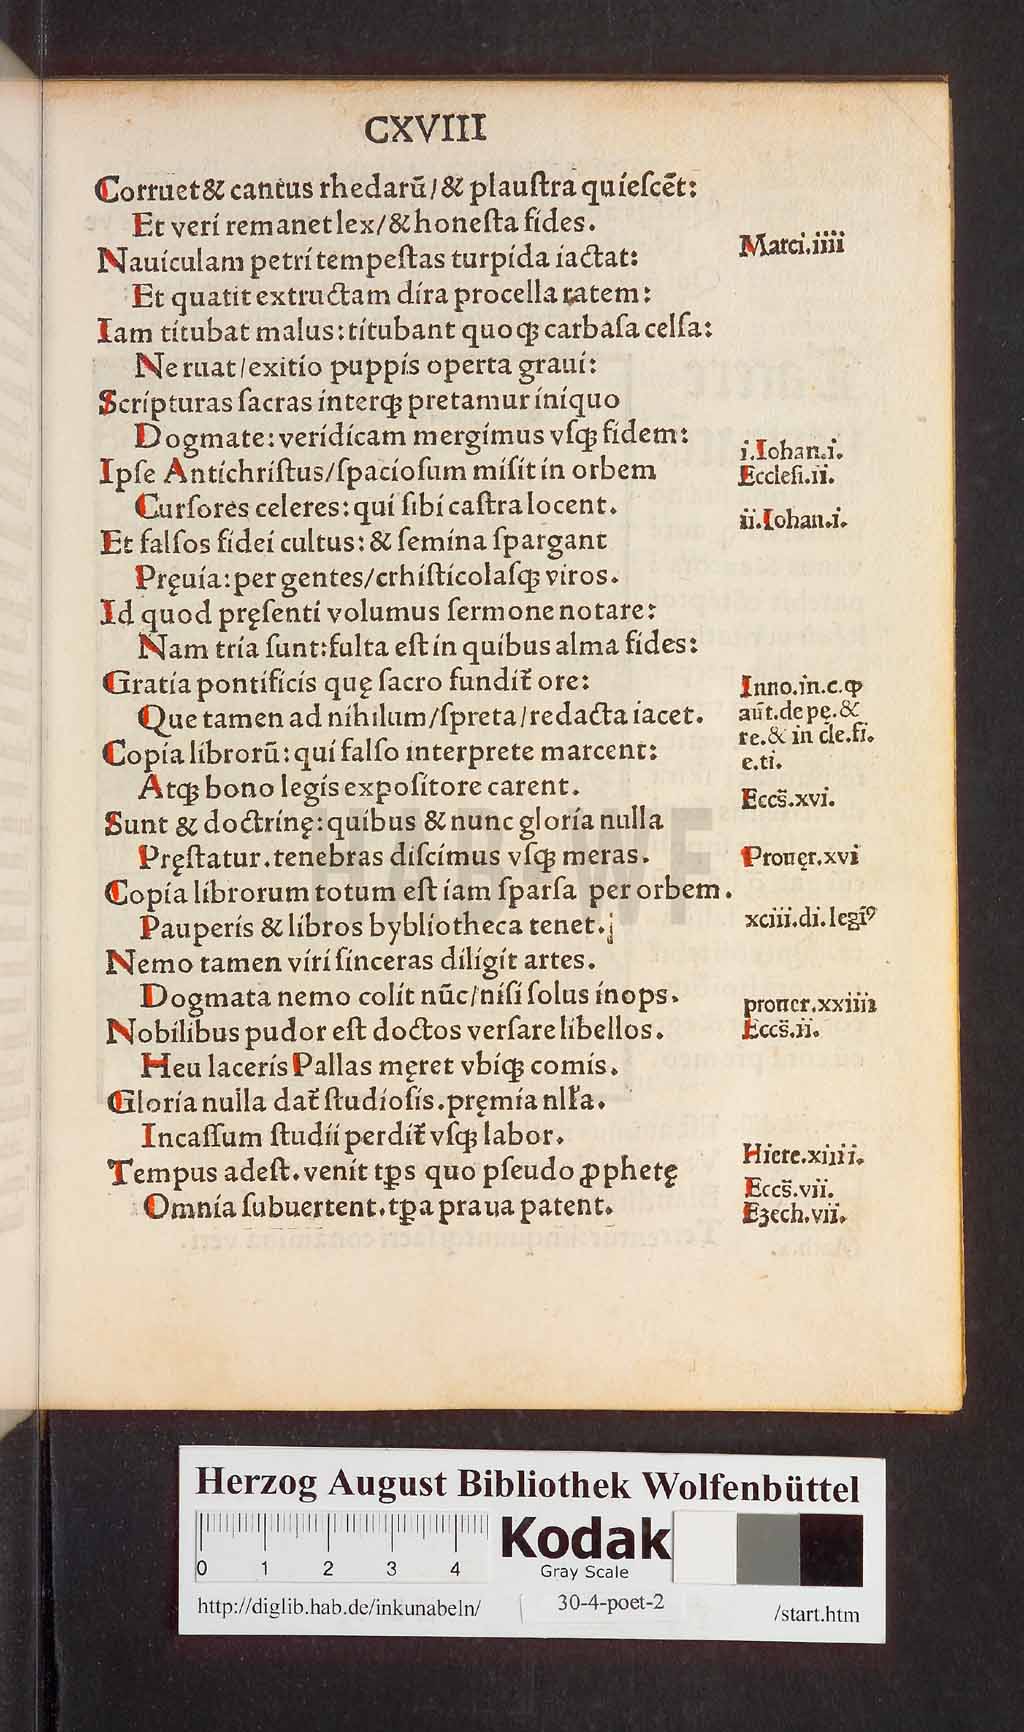 CXVIII
Corruet & cantus rhedarũ/& plauſtra quieſcẽt:
Et veri remanet lex/& honeſta fides.
Nauiculam petri tempeſtas turpida iactat:
Et quatit extructam dira procella ratem:
Iam titubat malus: titubant quoqꝫ carbaſa celſa:
Ne ruat/exitio puppis operta graui:
Scripturas ſacras interqꝫ pretamur iniquo
Dogmate: veridicam mergimus vſqꝫ fidem:
Ipſe Antichriſtus/ſpacioſum miſit in orbem
Curſores celeres: qui ſibi caſtra locent.
Et falſos fidei cultus: & ſemina ſpargant
Pręuia: per gentes/crhiſticolaſqꝫ viros.
Id quod pręſenti volumus ſermone notare:
Nam tria ſunt: fulta eſt in quibus alma fides:
Gratia pontificis quę ſacro fundit᷑ ore:
Que tamen ad nihilum/ſpreta/redacta iacet.
Copia librorũ: qui falſo interprete marcent:
Atqꝫ bono legis expoſitore carent.
Sunt & doctrinę: quibus & nunc gloria nulla
Pręſtatur. tenebras diſcimus vſqꝫ meras.
Copia librorum totum eſt iam ſparſa per orbem.
Pauperis & libros bybliotheca tenet.
Nemo tamen viri ſinceras diligit artes.
Dogmata nemo colit nũc/niſi ſolus inops.
Nobilibus pudor eſt doctos verſare libellos.
Heu laceris Pallas męret vbiqꝫ comis.
Gloria nulla dat᷑ ſtudioſis. pręmia nll᷑a.
Incaſſum ſtudii perdit᷑ vſqꝫ labor.
Tempus adeſt. venit tꝑs quo pſeudo ꝓphetę
Omnia ſubuertent. tꝑa praua patent.
Marci.iiii
i.Iohan.i.
Eccleſi.ii.
ii.Iohan.i.
Inno.in.c.qꝫ
aũt.de pę.&
re.& in cle.fi.
e.ti.
Eccs̃.xvi.
Prouęr.xvi
xciii.di.legĩꝰ
prouer.xxiiii
Eccs̃.ii.
Hiere.xiiii.
Eccs̃.vii.
Ezech.vii.
HAB-WF
Herzog August Bibliothek Wolfenbüttel
0 1 2 3 4
Kodak
Gray Scale
http://diglib.hab.de/inkunabeln/
30-4-poet-2
/start.htm